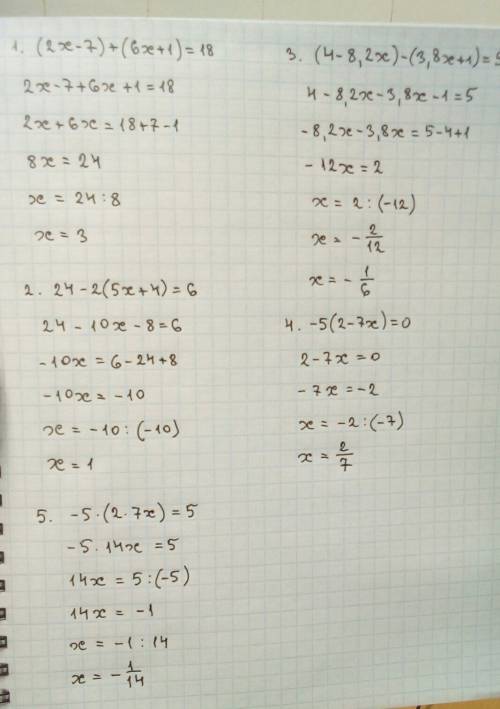 1. (2x-7)+(6x+1)=18
2x-7+6x+1=18
2x+6x=18+7-1
8x=24
x=24:8
x=3
2. 24-2(5x+4)=6
24-10x-8=6
-10x=6-24+8
-10x=-10
x=-10:(-10)
x=1
3. (4-8,2x)-(3,8x+1)=5
4-8,2x-3,8x-1=5
-8,2x-3,8x=5-4+1
-12x=2
x=2:(-12)
x=-2/12
x=-1/6
4. -5(2-7x)=0
2-7x=0
-7x=-2
x=-2:(-7)
x=2/7
5. -5·(2·7x)=5
-5·14x=5
14x=5:(-5)
14x=-1
x=-1:14
x=-1/14